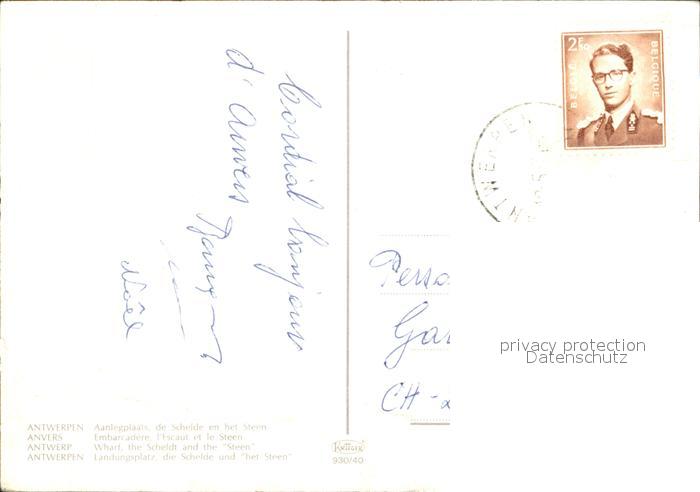 Cordial bonjour
d'Anvers
Noël
2F50
BELGIË
BELGIQUE
ANTWERPEN
Perso
Ga
CH-
privacy protection
Datenschutz
ANTWERPEN Aanlegplaats, de Schelde en het Steen
ANVERS Embarcadère, l'Escaut et le Steen
ANTWERP Wharf, the Scheldt and the "Steen"
ANTWERPEN Landungsplatz, die Schelde und "het Steen"
KRÜGER
930/40